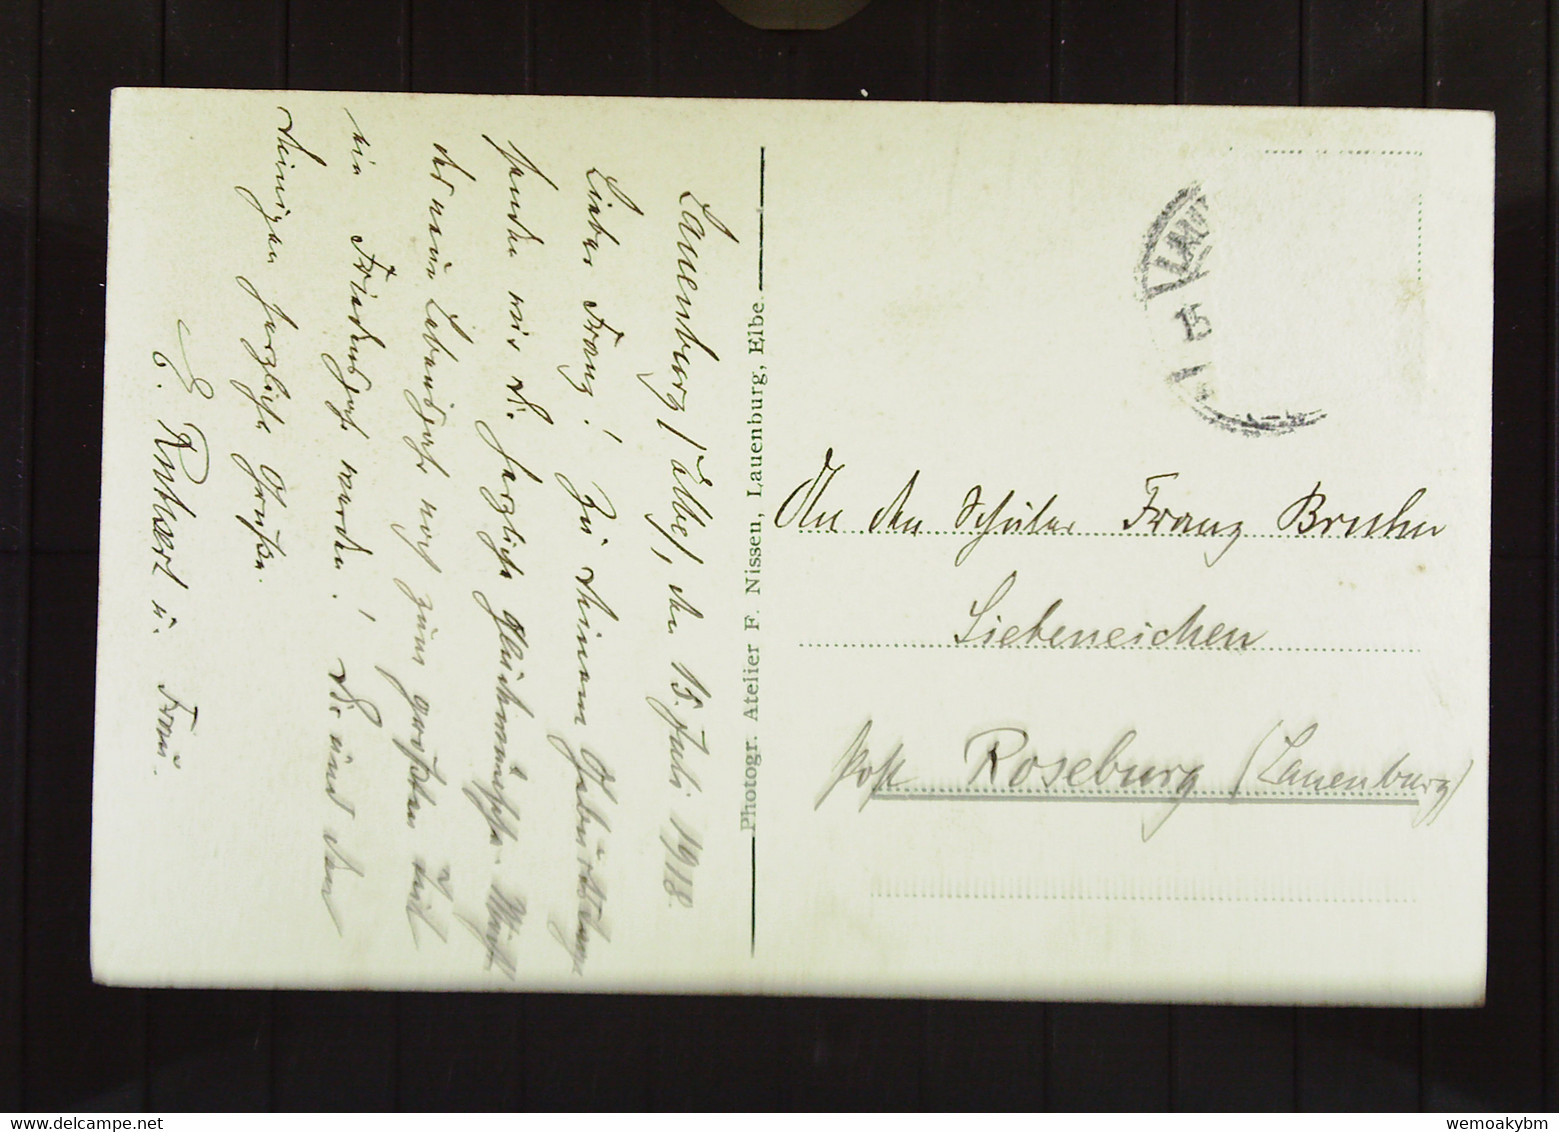 Lauenburg/Elbe, den 15. Juli 1918.
Lieber Franz! Zu Deinem Geburtstage
senden wir Dir herzliche Glückwünsche. Möchte
das neue Lebensjahr noch zum größten Teil
ein Friedensjahr werden! Dir und den
Deinigen herzliche Grüße.
E. u. Frau.
Photogr. Atelier F. Nissen, Lauenburg, Elbe.
LAU
15
An den Schüler Franz Bruhn
Liebeneichen
Post Roseburg (Lauenburg)
wemoakybm